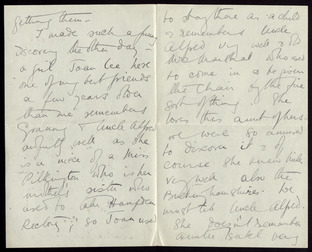 getting them –
I made such a funny
discovery the other day –
a girl Joan Lee here
one of my best friends
a few years older
than me remembers
Granny & Uncle Alfred
awfully well as she
is a niece of a Miss
Pilkington who is her
mother's sister who
used to
Rectory; so Joan used
to stay there as a child
& remembers Uncle
Alfred very well & 
who used
to come in & be given
the Chair by the fire
sort of thing. She
loves this aunt of hers
we were so amused
to discover it & of
course she knew Uncle
very well also the
 be
must tell Uncle Alfred.
She doesn't remember
Auntie Isabel very